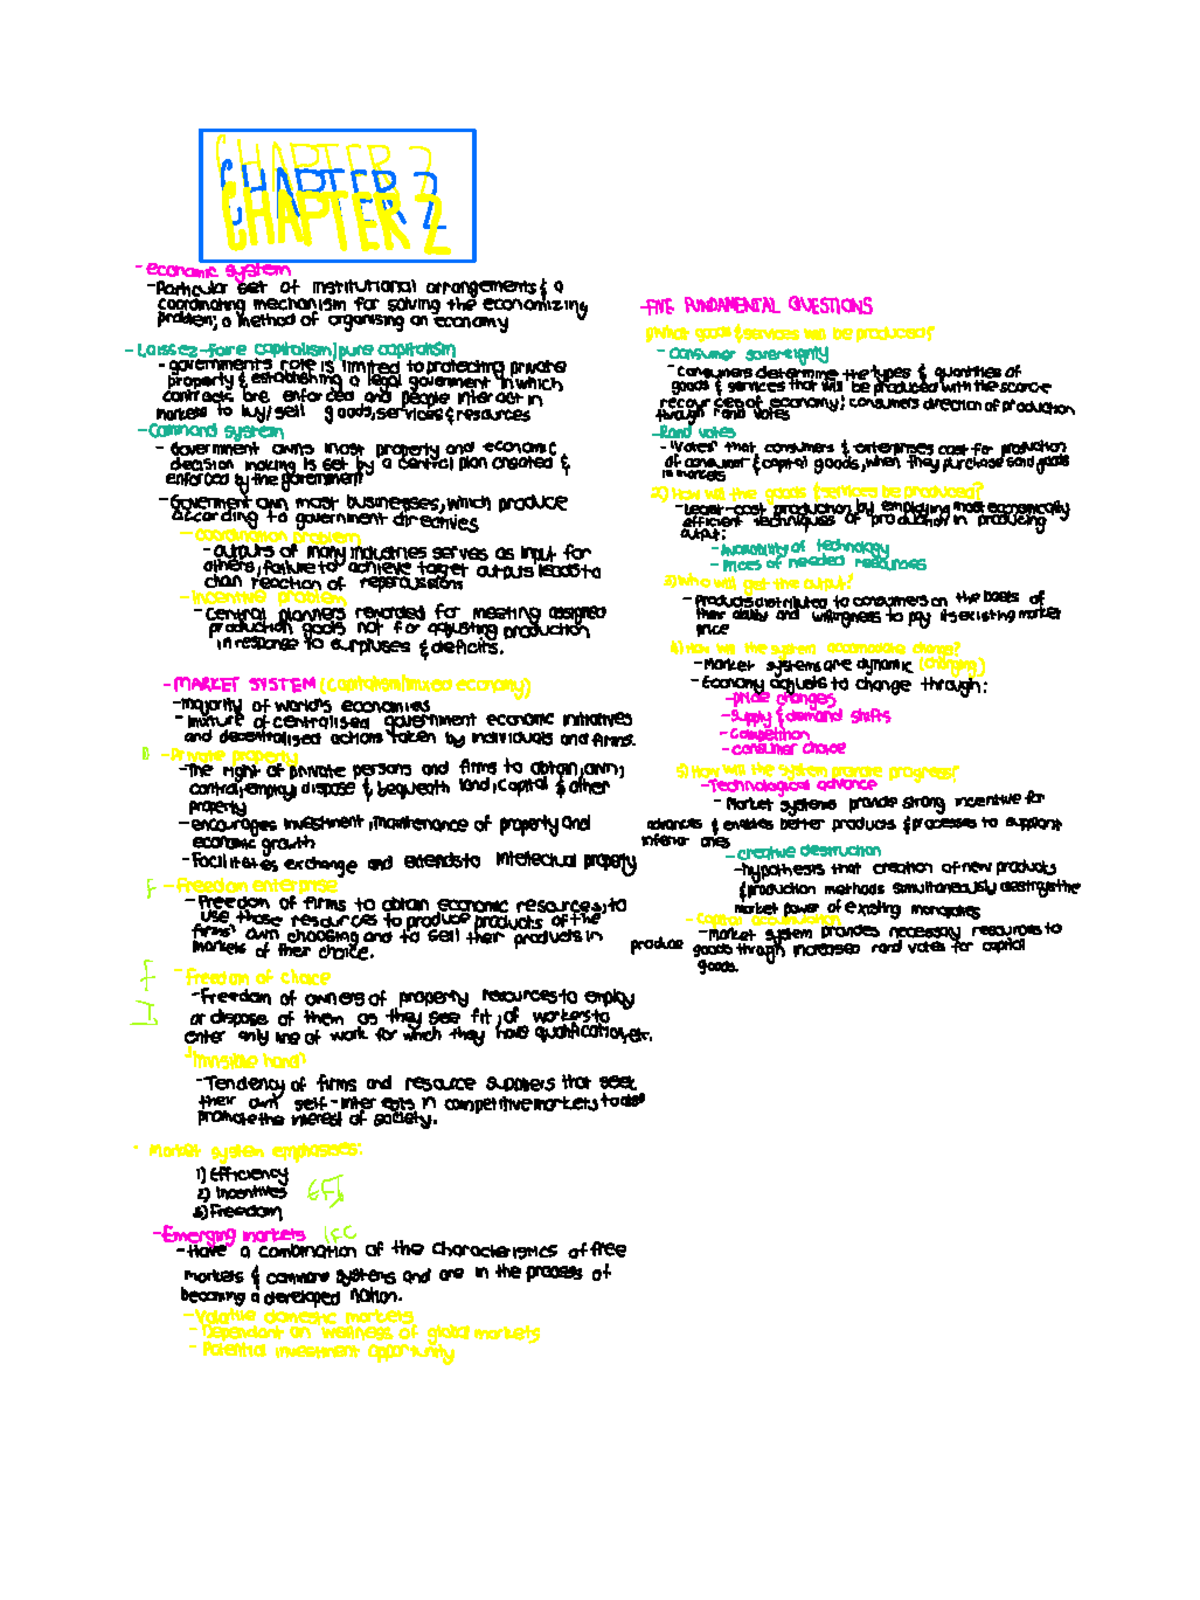 CHAPTER 2
CHAPTER 2
CHAPTER 2
- economic system
- Particular set of institutional arrangements & a
coordinating mechanism for solving the economizing
problem; a method of organising an economy
- Laissez-faire capitalism/pure capitalism
- government's role is limited to protecting private
property & establishing a legal government in which
contracts are enforced and people interact in
markets to buy/sell goods, services & resources
- Command system
- Government owns most property and economic
decision making is set by a central plan created &
enforced by the government
- Goverment own most businesses, which produce
according to government directives
- Coordination problem
- outputs of many industries serves as input for
others, failure to achieve target outputs leads to
chain reaction of repercussions
- Incentive problem
- Central planners rewarded for meeting assigned
production goals not for adjusting production
in response to surpluses & deficits.
- MARKET SYSTEM (capitalism/mixed economy)
- majority of world's economies
- mixture of centralised government economic initiatives
and decentralised actions taken by individuals and firms.
- Private property
- The right of private persons and firms to obtain, own,
control, employ, dispose & bequeath land, capital & other
property
- encourages investment, maintenance of property and
economic growth
- Facilitates exchange and extends to intellectual property
F - Freedom enterprise
- Freedom of firms to obtain economic resources, to
use those resources to produce products of the
firms' own choosing and to sell their products in
markets of their choice.
F - Freedom of choice
- Freedom of owners of property resources to employ
or dispose of them as they see fit, of workers to
enter any line of work for which they have qualification, etc.
I
'Invisible hand'
- Tendency of firms and resource suppliers that seek
their own self-interests in competitive markets to also
promote the interest of society.
· Market system emphasises:
1) Efficiency
2) Incentives EFI
3) Freedom
- Emerging markets IFC
- Have a combination of the characteristics of free
markets & command systems and are in the process of
becoming a developed nation.
- Volatile domestic markets
- Dependant on wellness of global markets
- Potential investment opportunity
- FIVE FUNDAMENTAL QUESTIONS
1) What goods & services will be produced?
- Consumer sovereignty
- Consumers determine the types & quantities of
goods & services that will be produced with the scarce
resources of economy; consumers direction of production
through rand votes
- Rand votes
- 'Votes' that consumers & enterprises cast for production
of consumer & capital goods, when they purchase said goods
in markets
2) How will the goods & services be produced?
- Least-cost production by employing most economically
efficient techniques of production in producing
output:
- Availability of technology
- Prices of needed resources
3) Who will get the output?
- Products distributed to consumers on the basis of
their ability and willingness to pay its existing market
price
4) How will the system accomodate change?
- Market systems are dynamic (changing)
- Economy adjusts to change through:
- price changes
- Supply & demand shifts
- Competition
- consumer choice
5) How will the system promote progress?
- Technological advance
- Market systems provide strong incentive for
advances & enables better products & processes to supplant
inferior ones
- Creative destruction
- hypothesis that creation of new products
& production methods simultaneously destroys the
market power of existing monopolies
- Capital accumulation
- Market system provides necessary resources to
produce goods through increased rand votes for capital
goods.